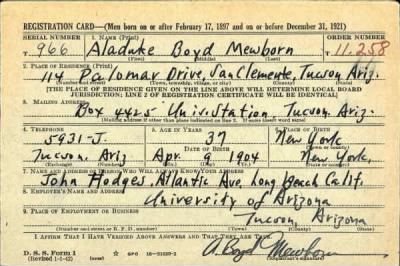 REGISTRATION CARD—(Men born on or after February 17, 1897 and on or before December 31, 1921)
SERIAL NUMBER 1. NAME (Print) ORDER NUMBER
T 966 Aladuke Boyd Mewborn 11,258
(First) (Middle) (Last)
2. PLACE OF RESIDENCE (Print)
114 Palomar Drive, San Clemente, Tucson Ariz.
(Number and street) (Town, township, village, or city) (County) (State)
[THE PLACE OF RESIDENCE GIVEN ON THE LINE ABOVE WILL DETERMINE LOCAL BOARD
JURISDICTION; LINE 2 OF REGISTRATION CERTIFICATE WILL BE IDENTICAL]
3. MAILING ADDRESS
Box 4425 Univ. Station Tucson, Ariz.
[Mailing address if other than place indicated on line 2. If same insert word same]
4. TELEPHONE 5. AGE IN YEARS 6. PLACE OF BIRTH
5931-J. 37 New York
DATE OF BIRTH (Town or county)
Tucson, Ariz Apr. 9 1904 New York
(Exchange) (Number) (Mo.) (Day) (Yr.) (State or country)
7. NAME AND ADDRESS OF PERSON WHO WILL ALWAYS KNOW YOUR ADDRESS
John Hodges, Atlantic Ave, Long Beach Calif.
8. EMPLOYER'S NAME AND ADDRESS
University of Arizona
9. PLACE OF EMPLOYMENT OR BUSINESS
Tucson, Arizona
(Number and street or R. F. D. number) (Town) (County) (State)
I AFFIRM THAT I HAVE VERIFIED ABOVE ANSWERS AND THAT THEY ARE TRUE.
D. S. S. Form 1
(Revised 1-1-42) (over)
A. Boyd Mewborn